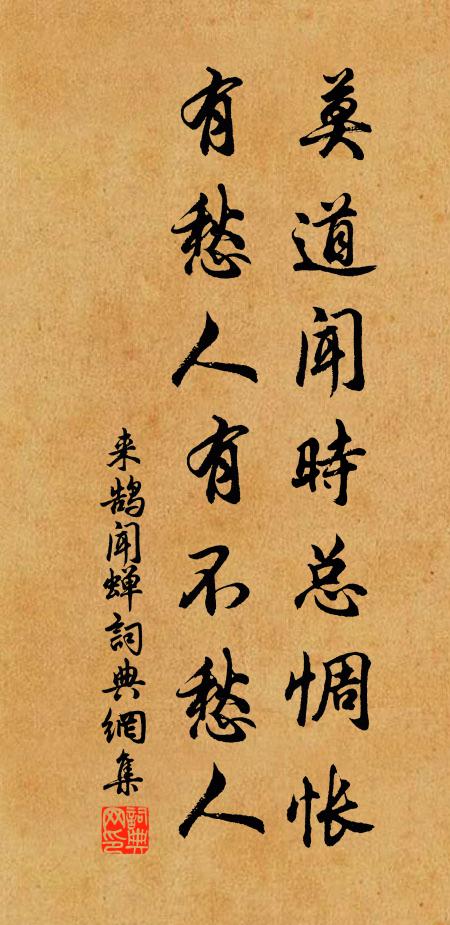 莫道闻時总惆怅
有愁人有不愁人
来鹄闻蝉詞典網集
詞典网印